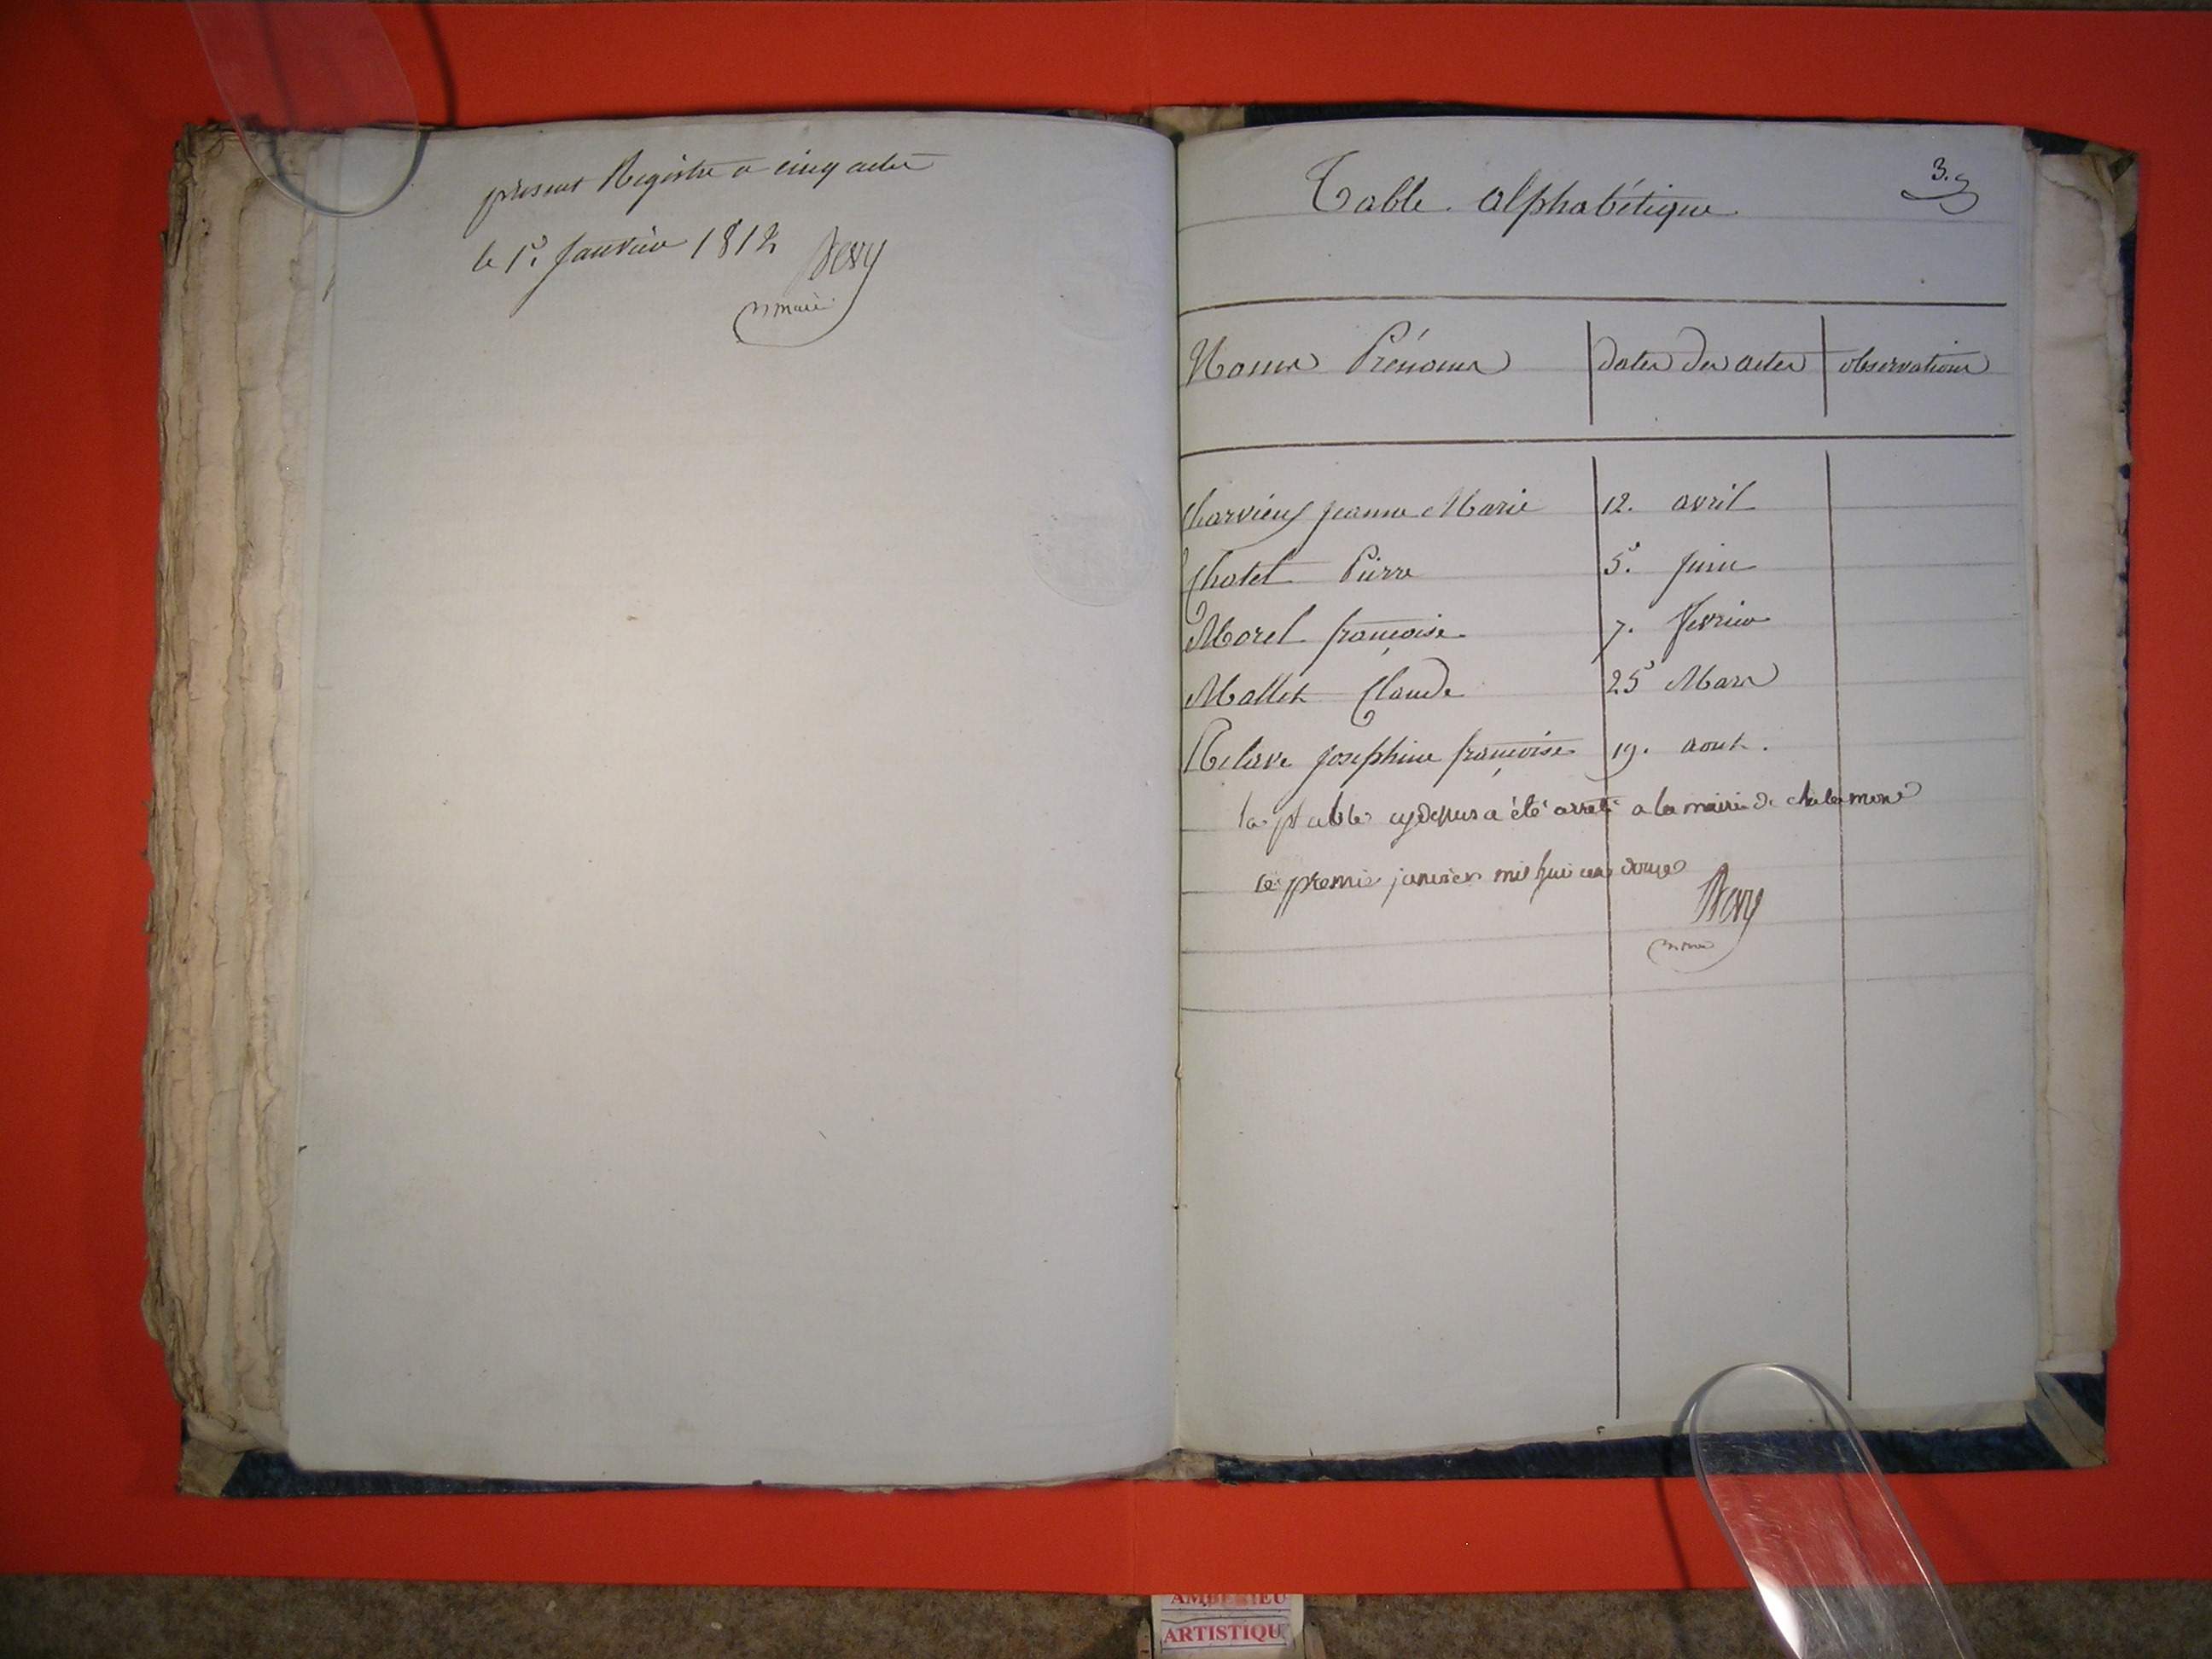 present Registre a cinq actes
le 1er Janvier 1812
maire
Table alphabétique
3.
Noms Prénoms | dates des actes | observations
Charvieux jeanne Marie 12. avril
Chatel Pierre 5. Juin
Morel françoise 7. fevrier
Mallet Claude 25 Mars
josephine françoise 19. aout.
la table cydessus a été arreté a la mairie de chalamont
le premier janvier mil huit cent douze
AMBERIEU
ARTISTIQU